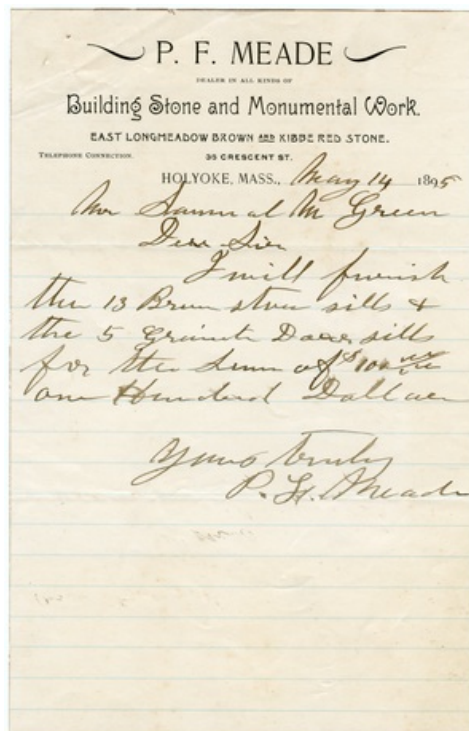 P. F. MEADE
DEALER IN ALL KINDS OF
Building Stone and Monumental Work.
EAST LONGMEADOW BROWN AND KIBBE RED STONE.
TELEPHONE CONNECTION.
35 CRESCENT ST.
HOLYOKE, MASS., May 14 1895
Mr Samual M Green
Dear Sier
I will furnish
the 13 Brown stone sills &
the 5 Granite Door sills
for the Sum of $100
one Hundred Dollars
Yours truly
P. F. Meade